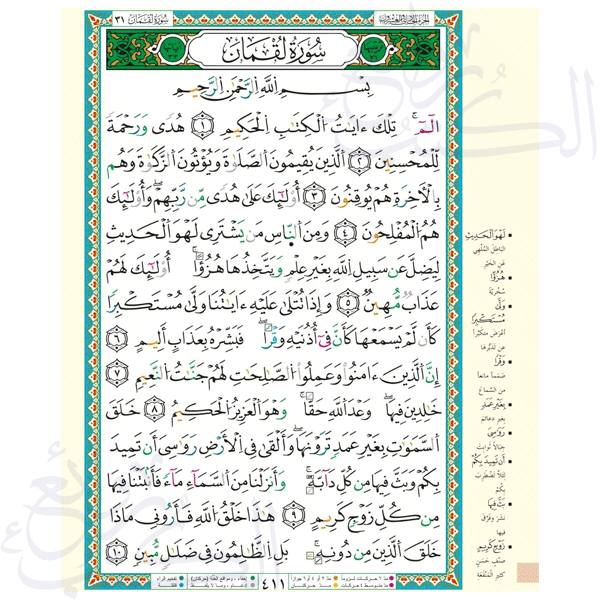 الجزء الحادي والعشرون
سورة لقمان ٣١
سُورَةُ لُقْمَانَ
بِسْمِ اللَّهِ الرَّحْمَٰنِ الرَّحِيمِ
الٓمٓ ١ تِلْكَ ءَايَٰتُ الْكِتَٰبِ الْحَكِيمِ ٢ هُدًى وَرَحْمَةً
لِّلْمُحْسِنِينَ ٣ الَّذِينَ يُقِيمُونَ الصَّلَوٰةَ وَيُؤْتُونَ الزَّكَوٰةَ وَهُم
بِالْءَاخِرَةِ هُمْ يُوقِنُونَ ٤ أُوْلَٰٓئِكَ عَلَىٰ هُدًى مِّن رَّبِّهِمْ وَأُوْلَٰٓئِكَ
هُمُ الْمُفْلِحُونَ ٥ وَمِنَ النَّاسِ مَن يَشْتَرِى لَهْوَ الْحَدِيثِ
لِيُضِلَّ عَن سَبِيلِ اللَّهِ بِغَيْرِ عِلْمٍ وَيَتَّخِذَهَا هُزُوًا أُوْلَٰٓئِكَ لَهُمْ
عَذَابٌ مُّهِينٌ ٦ وَإِذَا تُتْلَىٰ عَلَيْهِ ءَايَٰتُنَا وَلَّىٰ مُسْتَكْبِرًا
كَأَن لَّمْ يَسْمَعْهَا كَأَنَّ فِىٓ أُذُنَيْهِ وَقْرًا فَبَشِّرْهُ بِعَذَابٍ أَلِيمٍ ٧
إِنَّ الَّذِينَ ءَامَنُوا۟ وَعَمِلُوا۟ الصَّٰلِحَٰتِ لَهُمْ جَنَّٰتُ النَّعِيمِ ٨
خَٰلِدِينَ فِيهَا وَعْدَ اللَّهِ حَقًّا وَهُوَ الْعَزِيزُ الْحَكِيمُ ٩ خَلَقَ
السَّمَٰوَٰتِ بِغَيْرِ عَمَدٍ تَرَوْنَهَا وَأَلْقَىٰ فِى الْأَرْضِ رَوَٰسِىَ أَن تَمِيدَ
بِكُمْ وَبَثَّ فِيهَا مِن كُلِّ دَآبَّةٍ وَأَنزَلْنَا مِنَ السَّمَآءِ مَآءً فَأَنۢبَتْنَا فِيهَا
مِن كُلِّ زَوْجٍ كَرِيمٍ ١٠ هَٰذَا خَلْقُ اللَّهِ فَأَرُونِى مَاذَا
خَلَقَ الَّذِينَ مِن دُونِهِ بَلِ الظَّٰلِمُونَ فِى ضَلَٰلٍ مُّبِينٍ ١١
٤١١
لَهْوَ الْحَدِيثِ
الباطل المُلهي
عن الخير
هُزُوًا
سُخرية
وَلَّىٰ
مُسْتَكْبِرًا
أعرض متكبّراً
عن تدبّرها
وَقْرًا
صمماً مانعاً
من السماع
بِغَيْرِ عَمَدٍ
بغير دعائم
رَوَٰسِىَ
جبالاً ثوابت
أَن تَمِيدَ بِكُمْ
لئلا تضطرب
بكم
بَثَّ فِيهَا
نشر وفرّق
فيها
زَوْجٍ كَرِيمٍ
صنف حسن
كثير المنفعة